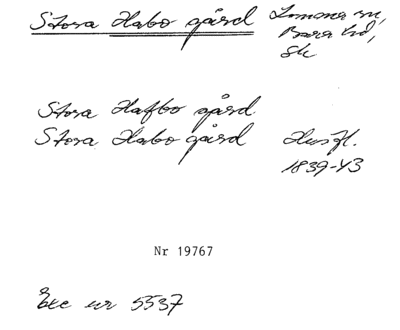 Stora Habo gård Lomma sn,
Bara hd,
Sk
Stora Hafbo gård
Stora Habo gård Husfl.
1839-43
Nr 19767
Exc nr 5537